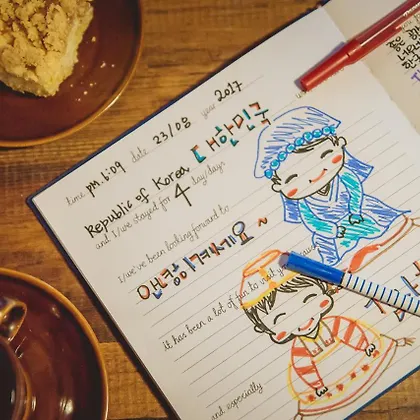 time pm.6:09 date 23/08 year 2017
Republic of Korea 대한민국
and I/we stayed for 4 day/days
I/we've been looking forward to
안녕하세요~
it has been a lot of fun to visit you
and especially